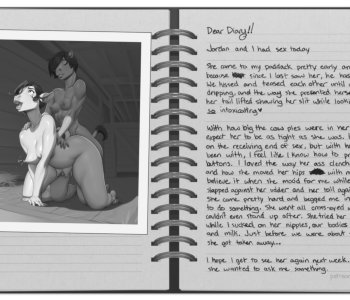 Dear Diary!!
Jordan and I had sex today
She came to my paddock pretty early and
because since I last saw her, he has
We kissed and teased each other until
dripping, and the way she presented herse
her tail lifted showing her slit while looki
so intoxicating♥
With how big the cow pies were in her
expect her to be tight as she was. I
on the receiving end of sex, but with h
been with, I feel like I know how to pre
buttons. I loved the way her ass clench
and how she moved her hips with m
believe it when she mooed for me while
slapped against her udder and her tail again
She came pretty hard and begged me in
to do something. She went all cross-eyed a
couldn't even stand up after. She tried her
while I sucked on her nipples, our bodies
and milk. Just before we were about
she got taken away...
I hope I get to see her again next week.
she wanted to ask me something.